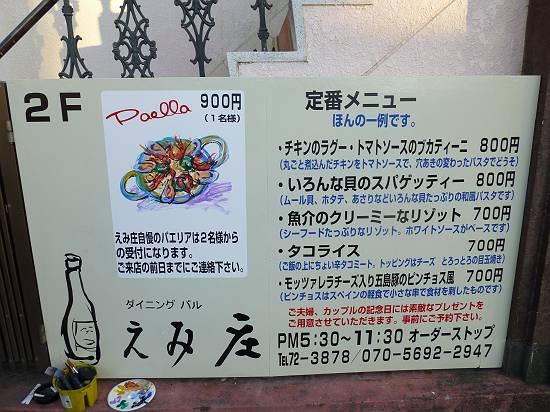 2F
Paella 900円
(1名様)
えみ庄自慢のパエリアは2名様から
の受付になります。
ご来店の前日までにご連絡下さい。
ダイニング バル
えみ庄
定番メニュー
ほんの一例です。
・チキンのラグー・トマトソースのブカティーニ 800円
(丸ごと煮込んだチキンをトマトソースで、穴あきの変わったパスタでどうぞ)
・いろんな貝のスパゲッティー 800円
(ムール貝、ホタテ、あさりなどいろんな貝たっぷりの和風パスタです)
・魚介のクリーミーなリゾット 700円
(シーフードたっぷりなリゾット。ホワイトソースがベースです)
・タコライス 700円
(ご飯の上にちょい辛タコミート。トッピングはチーズ とろっとろの目玉焼き)
・モッツァレラチーズ入り五島豚のピンチョス風 700円
(ピンチョスはスペインの軽食で小さな串で食材を刺したものです)
ご夫婦、カップルの記念日には素敵なプレゼントを
ご用意させていただきます。事前にご予約下さい。
PM5:30~11:30 オーダーストップ
TEL72-3878/070-5692-2947